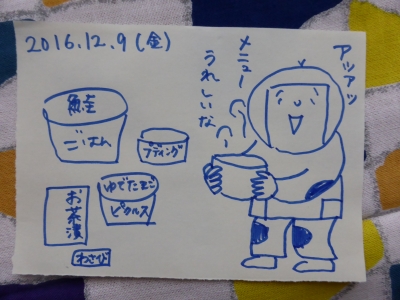 2016.12.9(金)
鮭
ごはん
プディング
ゆでたまご
ピクルス
お茶漬
わさび
アツアツ
メニュー
うれしいな